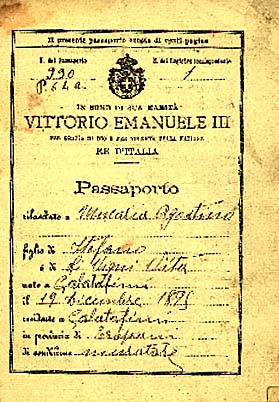 Il presente passaporto consta di venti pagine
N. del Passaporto N. del Registro corrispondente
990 1
P 64a
IN NOME DI SUA MAESTÀ
VITTORIO EMANUELE III
PER GRAZIA DI DIO E PER VOLONTÀ DELLA NAZIONE
RE D'ITALIA
Passaporto
rilasciato a Mucaria Agostino
figlio di Stefano
e di Vita
nato a Calatafimi
il 19 Dicembre 187
residente a Calatafimi
in provincia di Trapani
di condizione